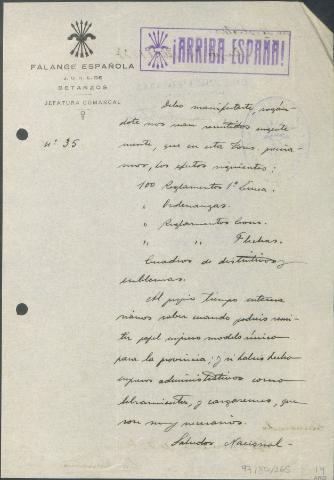 FALANGE ESPAÑOLA
J. O. N. S. DE
BETANZOS
JEFATURA COMARCAL
¡ARRIBA ESPAÑA!
nº 35
Debo manifestarte, rogán-
dote nos sean remitidos urgente
mente, que en esta precisa-
mos, los efectos siguientes:
100 Reglamentos 1ª Línea.
" Ordenanzas.
" Reglamentos
" " Flechas.
Cuadros de distintivos y
emblemas.
Al propio tiempo interesa
ríamos saber cuando podréis remi-
tir papel impreso modelo único
para la provincia; y si habéis hecho
impresos administrativos como
libramientos, y cargaremes, que
son muy necesarios.
Saludos Nacional-
97/30/265
14